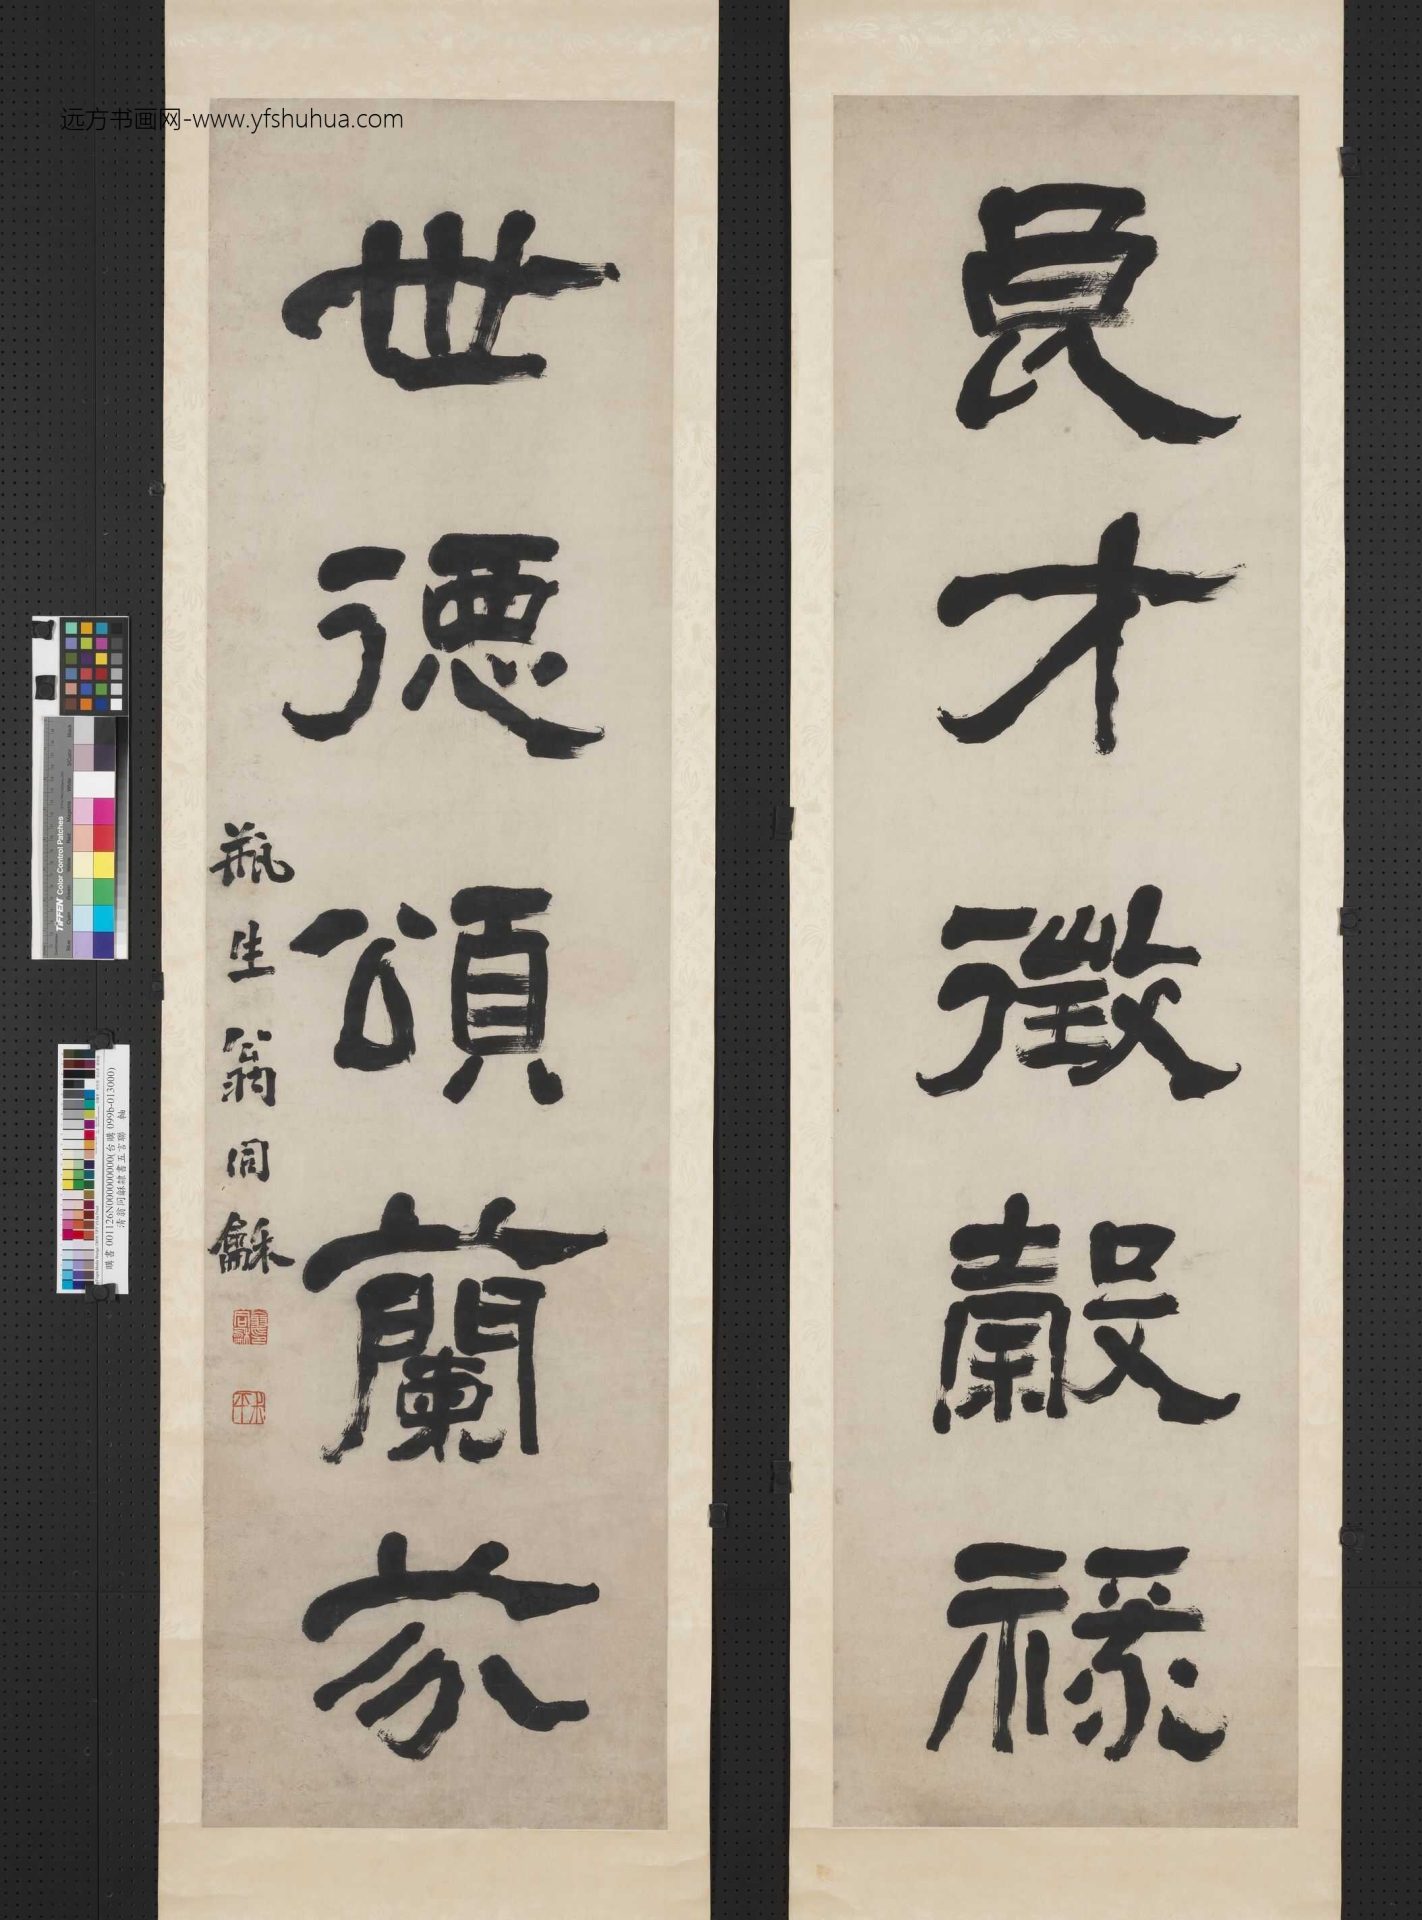 远方书画网-www.yfshuhua.com
良才徵穀祿
世德頌蘭芬
瓶生翁同龢
購書 001126N000000000(台購 099b-013000)
清翁同龢隸書五言聯 軸
TIFFEN Color Control Patches